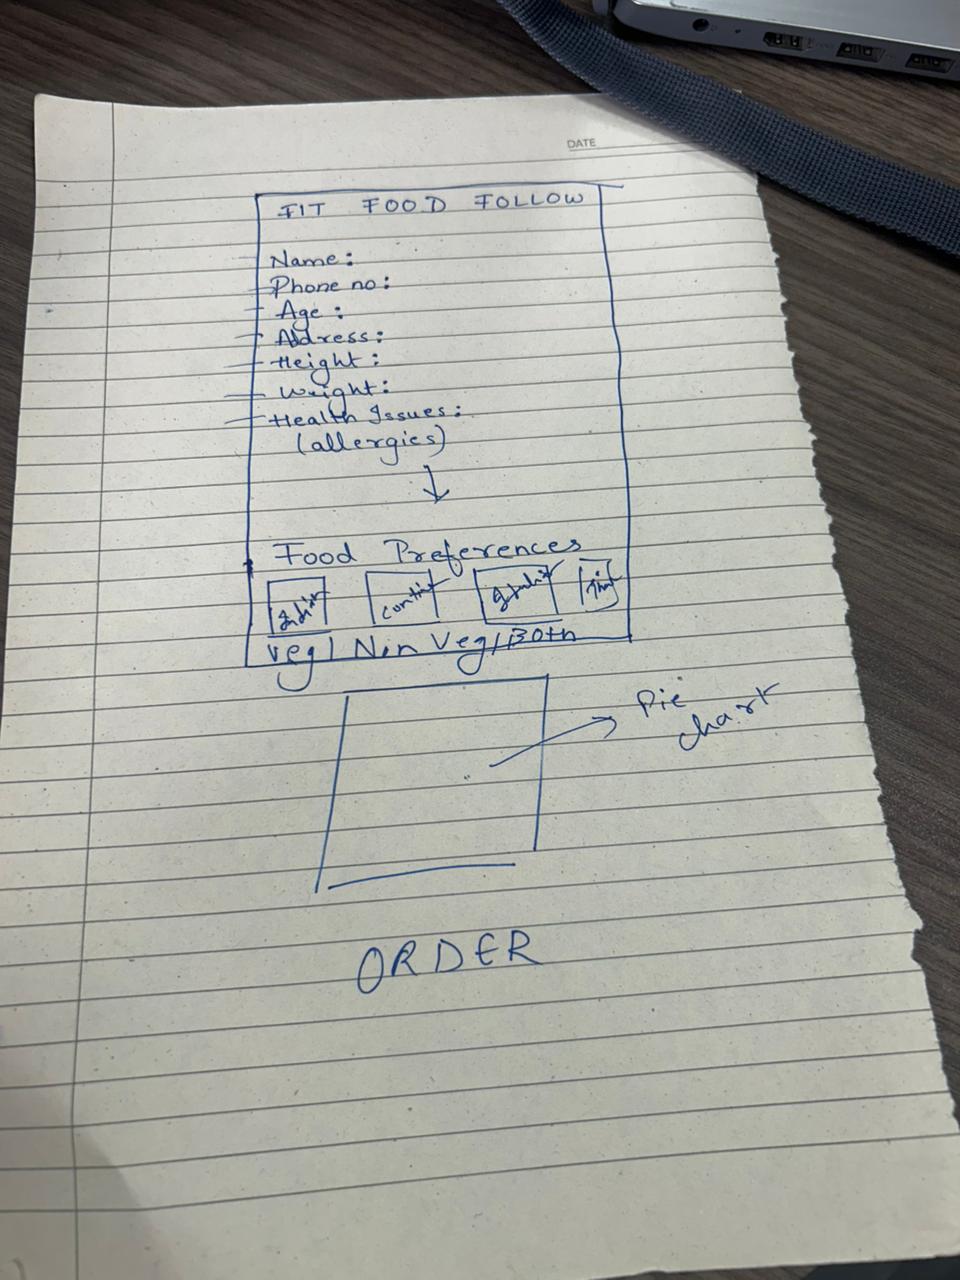 DATE
FIT FOOD FOLLOW
Name:
Phone no:
Age:
Address:
Height:
Weight:
Health Issues:
(allergies)
Food Preferences
Veg/Non Veg/Both
Pie
chart
ORDER